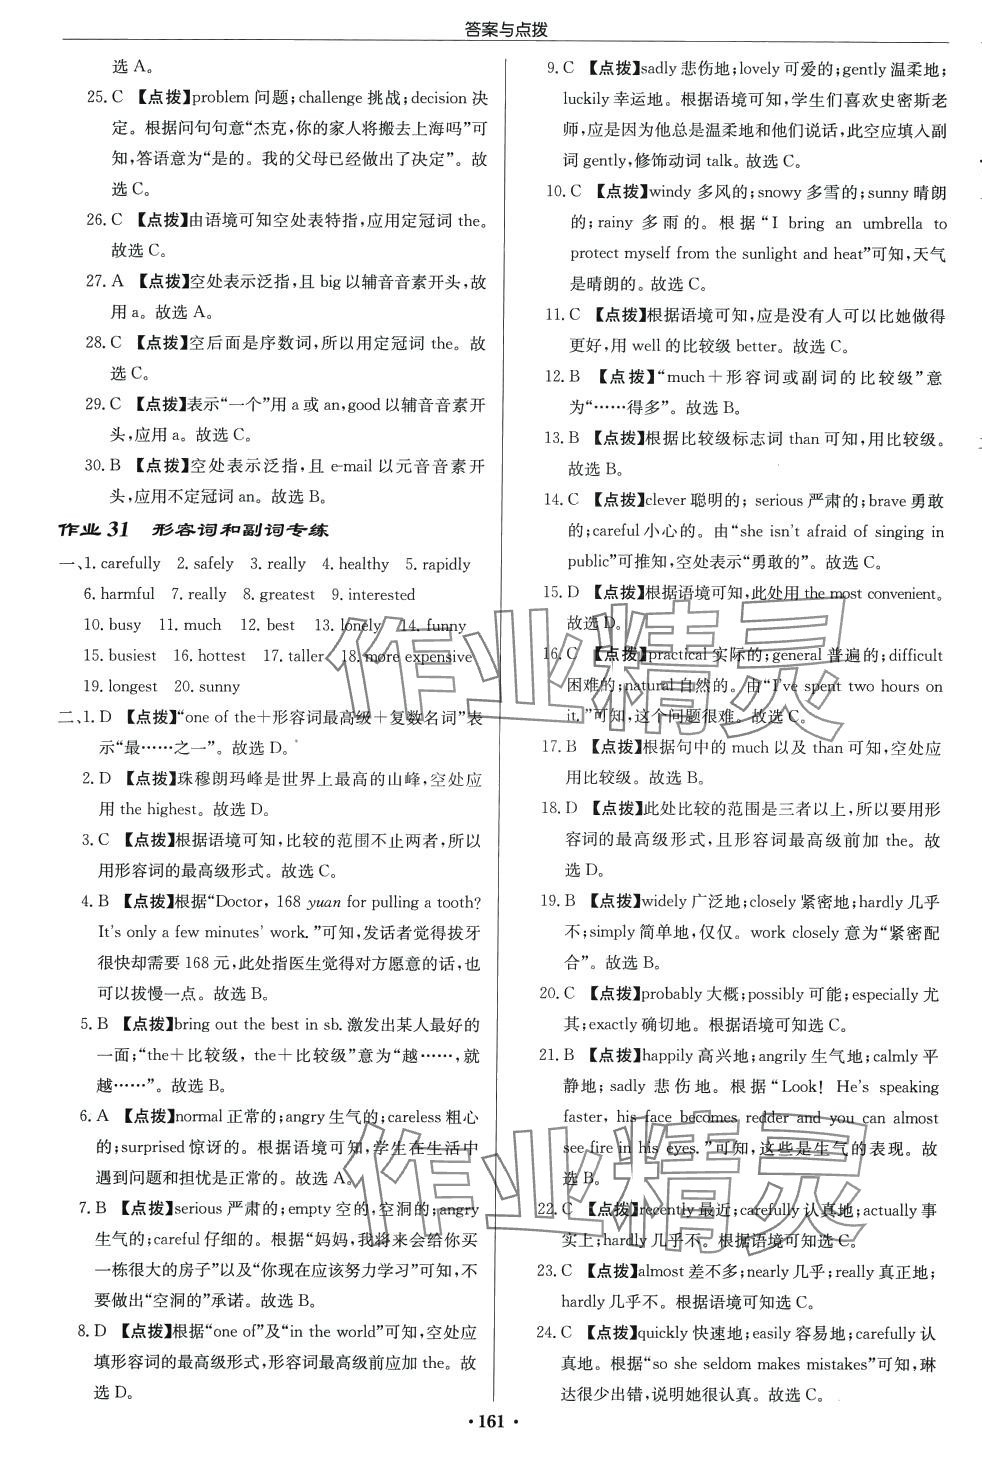 答案与点拨
选 A。
25. C 【点拨】problem 问题;challenge 挑战;decision 决
定。根据问句句意“杰克,你的家人将搬去上海吗”可
知,答语意为“是的。我的父母已经做出了决定”。故
选 C。
26. C 【点拨】由语境可知空处表特指,应用定冠词 the。
故选 C。
27. A 【点拨】空处表示泛指,且 big 以辅音音素开头,故
用 a。故选 A。
28. C 【点拨】空后面是序数词,所以用定冠词 the。故
选 C。
29. C 【点拨】表示“一个”用 a 或 an,good 以辅音音素开
头,应用 a。故选 C。
30. B 【点拨】空处表示泛指,且 e-mail 以元音音素开
头,应用不定冠词 an。故选 B。
作业 31 形容词和副词专练
一、1. carefully 2. safely 3. really 4. healthy 5. rapidly
6. harmful 7. really 8. greatest 9. interested
10. busy 11. much 12. best 13. lonely 14. funny
15. busiest 16. hottest 17. taller 18. more expensive
19. longest 20. sunny
二、1. D 【点拨】“one of the+形容词最高级+复数名词”表
示“最……之一”。故选 D。
2. D 【点拨】珠穆朗玛峰是世界上最高的山峰,空处应
用 the highest。故选 D。
3. C 【点拨】根据语境可知,比较的范围不止两者,所以
用形容词的最高级形式。故选 C。
4. B 【点拨】根据“Doctor, 168 yuan for pulling a tooth?
It's only a few minutes' work.”可知,发话者觉得拔牙
很快却需要 168 元,此处指医生觉得对方愿意的话,也
可以拔慢一点。故选 B。
5. B 【点拨】bring out the best in sb. 激发出某人最好的
一面;“the+比较级, the+比较级”意为“越……,就
越……”。故选 B。
6. A 【点拨】normal 正常的;angry 生气的;careless 粗心
的;surprised 惊讶的。根据语境可知,学生在生活中
遇到问题和担忧是正常的。故选 A。
7. B 【点拨】serious 严肃的;empty 空的,空洞的;angry
生气的;careful 仔细的。根据“妈妈,我将来会给你买
一栋很大的房子”以及“你现在应该努力学习”可知,不
要做出“空洞的”承诺。故选 B。
8. D 【点拨】根据“one of”及“in the world”可知,空处应
填形容词的最高级形式,形容词最高级前应加 the。故
选 D。
9. C 【点拨】sadly 悲伤地;lovely 可爱的;gently 温柔地;
luckily 幸运地。根据语境可知,学生们喜欢史密斯老
师,应是因为他总是温柔地和他们说话,此空应填入副
词 gently,修饰动词 talk。故选 C。
10. C 【点拨】windy 多风的;snowy 多雪的;sunny 晴朗
的;rainy 多雨的。根据“I bring an umbrella to
protect myself from the sunlight and heat”可知,天气
是晴朗的。故选 C。
11. C 【点拨】根据语境可知,应是没有人可以比她做得
更好,用 well 的比较级 better。故选 C。
12. B 【点拨】“much+形容词或副词的比较级”意
为“……得多”。故选 B。
13. B 【点拨】根据比较级标志词 than 可知,用比较级。
故选 B。
14. C 【点拨】clever 聪明的; serious 严肃的;brave 勇敢
的;careful 小心的。由“she isn't afraid of singing in
public”可推知,空处表示“勇敢的”。故选 C。
15. D 【点拨】根据语境可知,此处用 the most convenient。
故选 D。
16. C 【点拨】practical 实际的;general 普遍的;difficult
困难的;natural 自然的。由“I've spent two hours on
it.”可知,这个问题很难。故选 C。
17. B 【点拨】根据句中的 much 以及 than 可知,空处应
用比较级。故选 B。
18. D 【点拨】此处比较的范围是三者以上,所以要用形
容词的最高级形式,且形容词最高级前加 the。故
选 D。
19. B 【点拨】widely 广泛地;closely 紧密地;hardly 几乎
不;simply 简单地,仅仅。work closely 意为“紧密配
合”。故选 B。
20. C 【点拨】probably 大概;possibly 可能;especially 尤
其;exactly 确切地。根据语境可知选 C。
21. B 【点拨】happily 高兴地;angrily 生气地;calmly 平
静地; sadly 悲伤地。根据“Look! He's speaking
faster, his face becomes redder and you can almost
see fire in his eyes.”可知,这些是生气的表现。故
选 B。
22. C 【点拨】recently 最近;carefully 认真地;actually 事
实上;hardly 几乎不。根据语境可知选 C。
23. C 【点拨】almost 差不多;nearly 几乎;really 真正地;
hardly 几乎不。根据语境可知选 C。
24. C 【点拨】quickly 快速地;easily 容易地;carefully 认
真地。根据“so she seldom makes mistakes”可知,琳
达很少出错,说明她很认真。故选 C。
· 161 ·
作业精灵
作业精灵